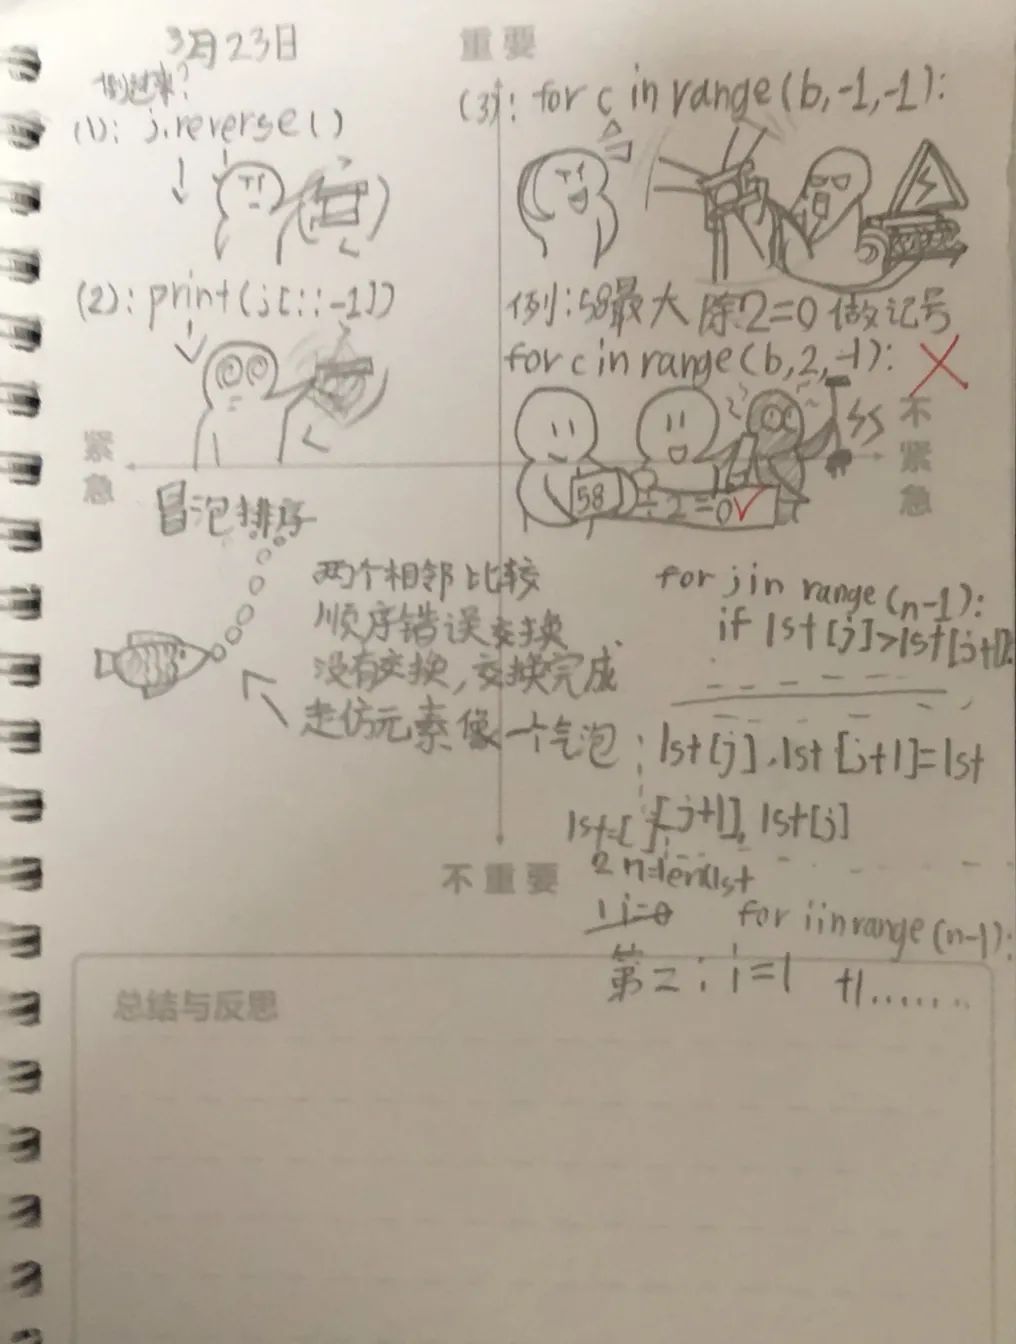 3月23日
重要
倒过来?
(1): j.reverse()
(3): for c in range(b,-1,-1):
(2): print(j[::-1])
例:58最大 除2=0 做记号
for c in range(b,2,-1):
紧急
不紧急
58 ÷2=0
冒泡排序
两个相邻比较
顺序错误交换
没有交换,交换完成
走仿元素像一个气泡
for j in range(n-1):
if lst[j]>lst[j+1]:
lst[j],lst[j+1]=lst
[j+1],lst[j]
lst=[]
2 n=len(lst
不重要
1 i=0
for i in range(n-1):
第二:i=1 +1.......
总结与反思